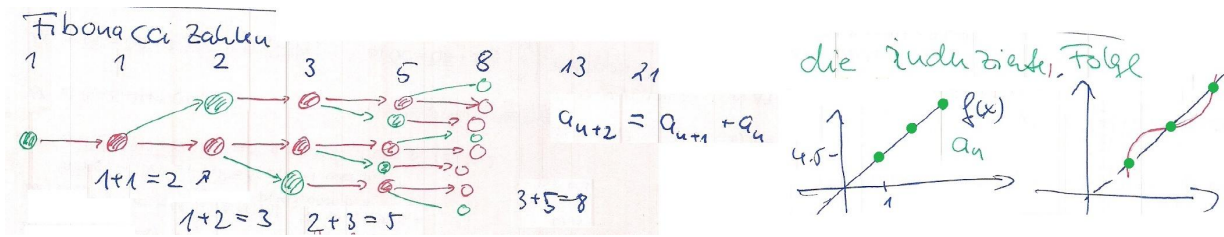 Fibonacci Zahlen
1 1 2 3 5 8 13 21
a_{n+2} = a_{n+1} + a_n
1+1=2
1+2=3 2+3=5
3+5=8
die induzierte Folge
f(x)
a_n
4.5
1